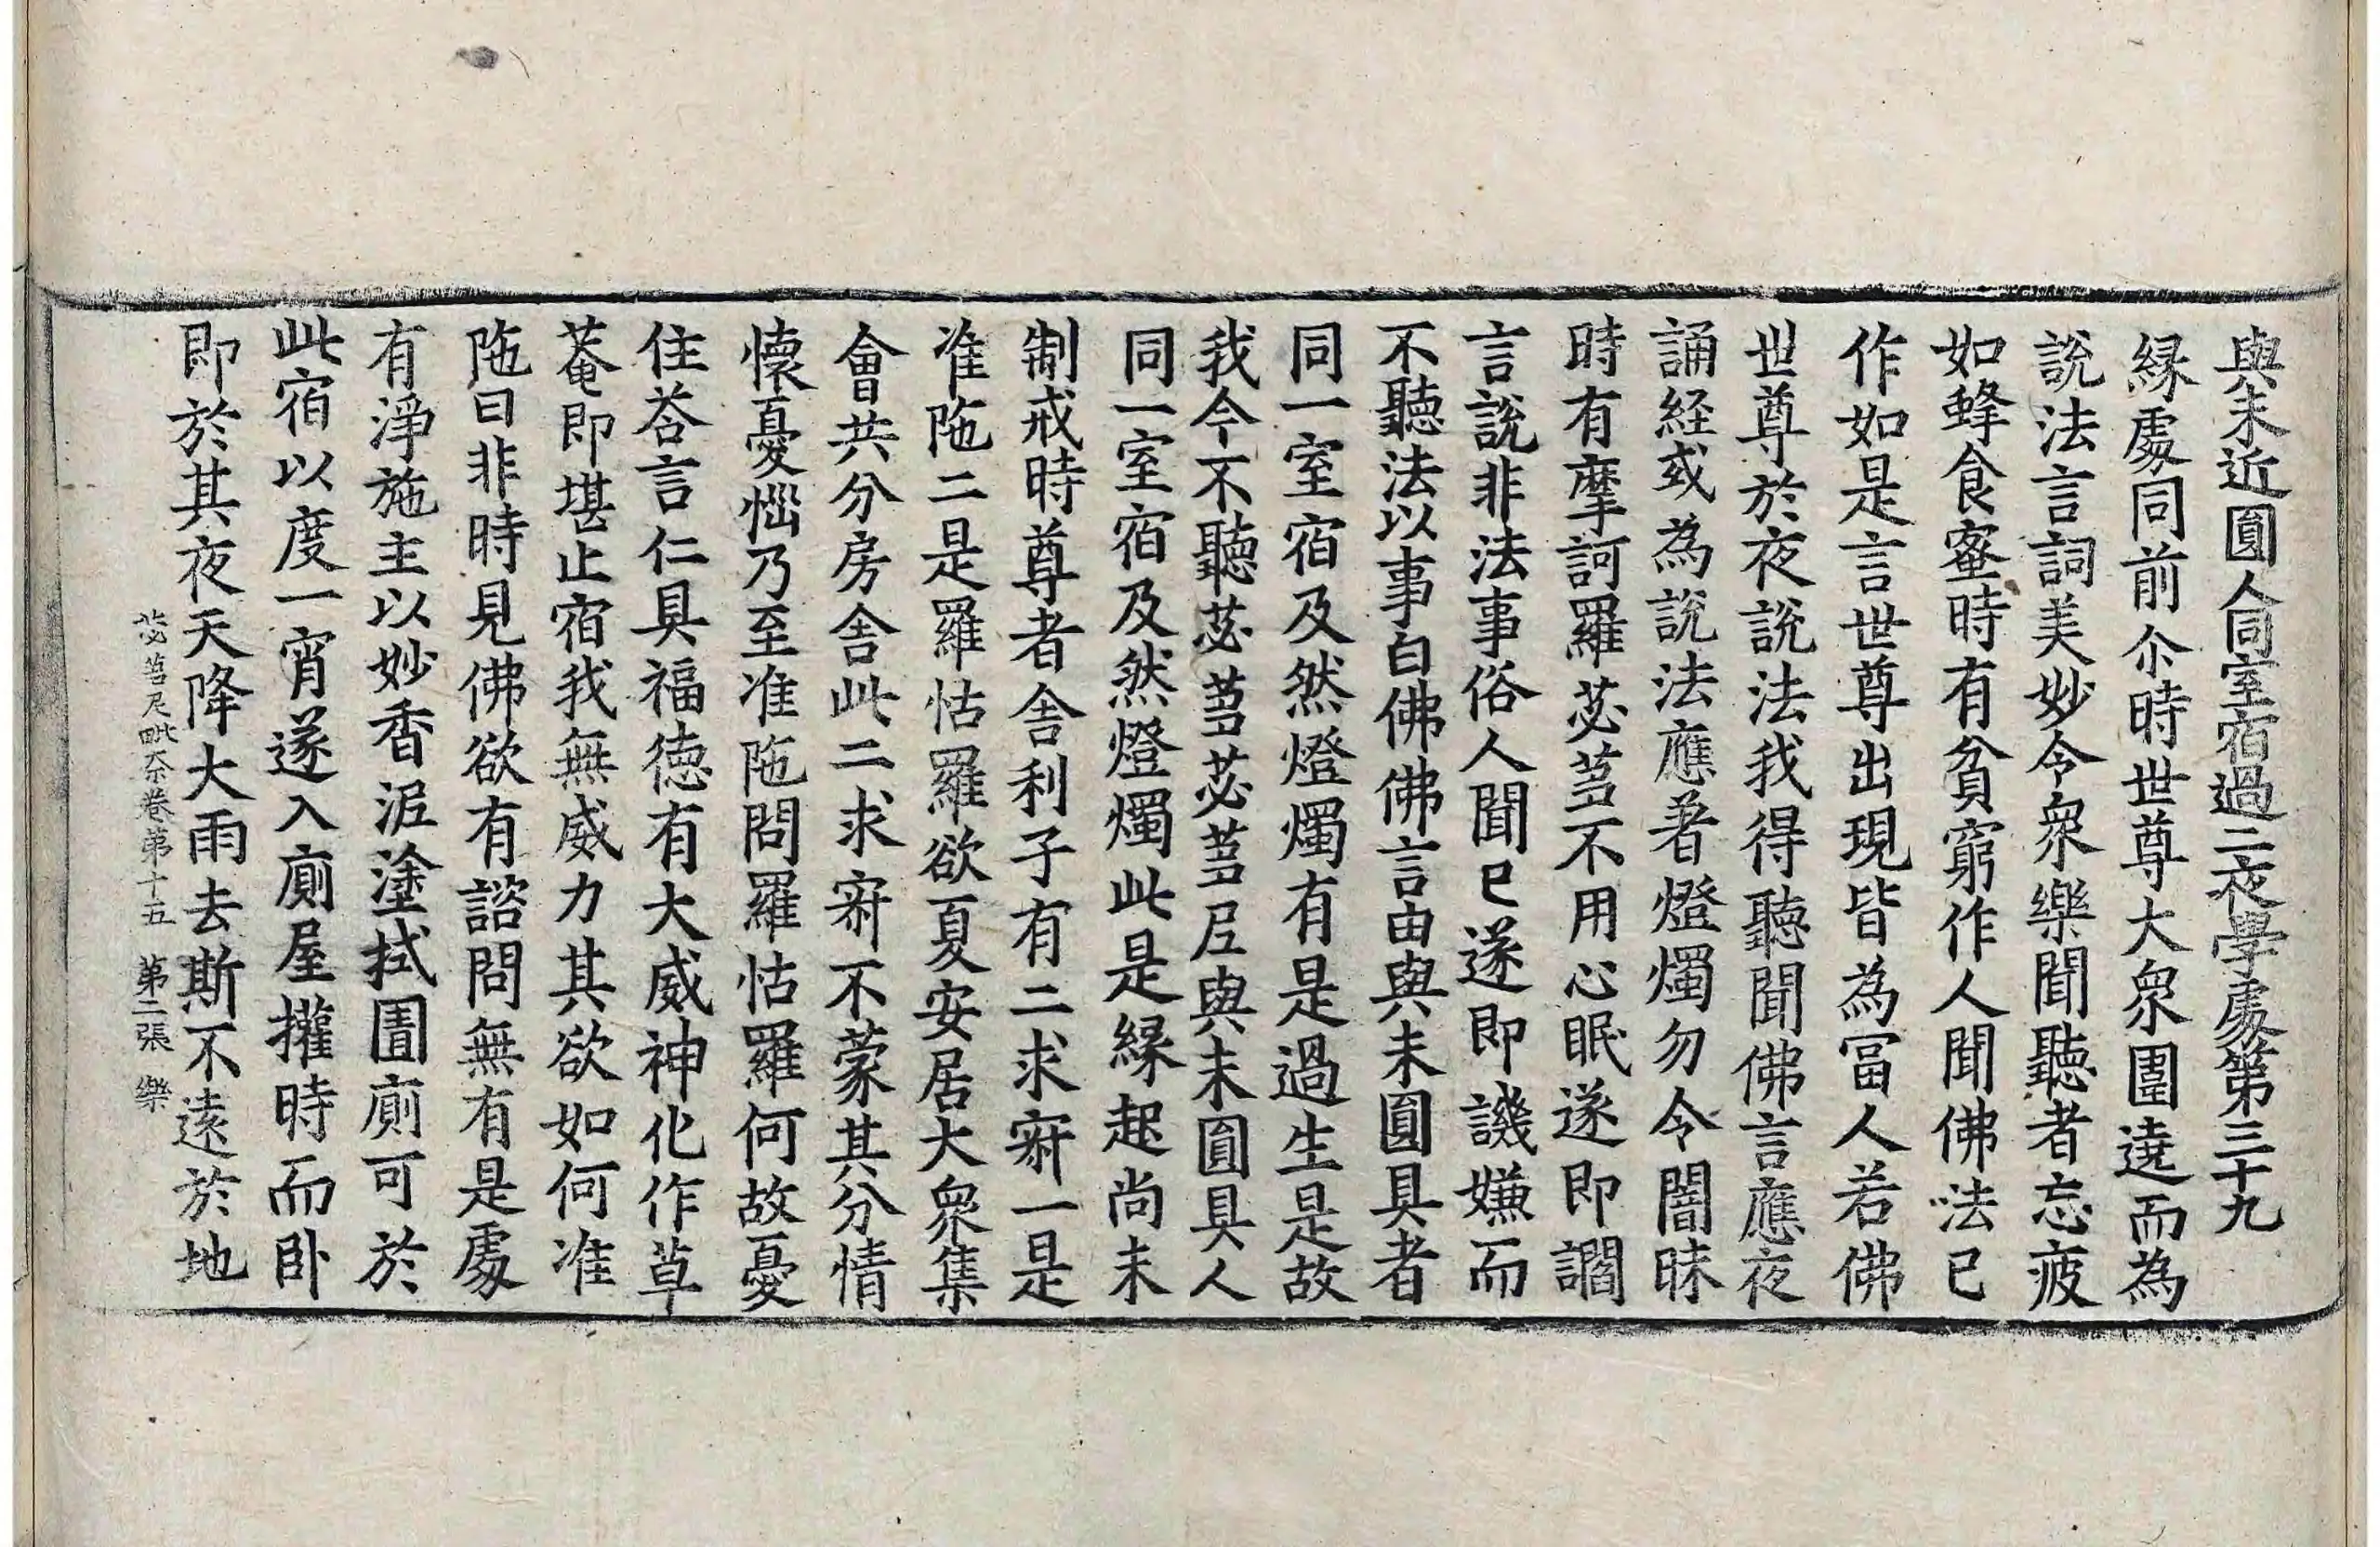 與未近圓人同室宿過二夜學處第三十九
緣處同前尒時世尊大衆圍遶而為
說法言詞美妙令衆樂聞聽者忘疲
如蜂食蜜時有貧窮作人聞佛法已
作如是言世尊出現皆為冨人若佛
世尊於夜說法我得聽聞佛言應夜
誦経或為說法應著燈燭勿令闇昧
時有摩訶羅苾蒭不用心眠遂即讇
言說非法事俗人聞已遂即譏嫌而
不聽法以事白佛佛言由與未圓具者
同一室宿及然燈燭有是過生是故
我今不聽苾蒭苾蒭尼與未圓具人
同一室宿及然燈燭此是緣起尚未
制戒時尊者舍利子有二求寂一是
准陁二是羅怙羅欲夏安居大衆集
會共分房舍此二求寂不蒙其分情
懷憂惱乃至准陁問羅怙羅何故憂
住荅言仁具福德有大威神化作草
菴即堪止宿我無威力其欲如何准
陁曰非時見佛欲有諮問無有是處
有淨施主以妙香泥塗拭圊廁可於
此宿以度一宵遂入廁屋攉時而卧
即於其夜天降大雨去斯不遠於地
苾蒭尼毗奈卷第十五 第二張 樂